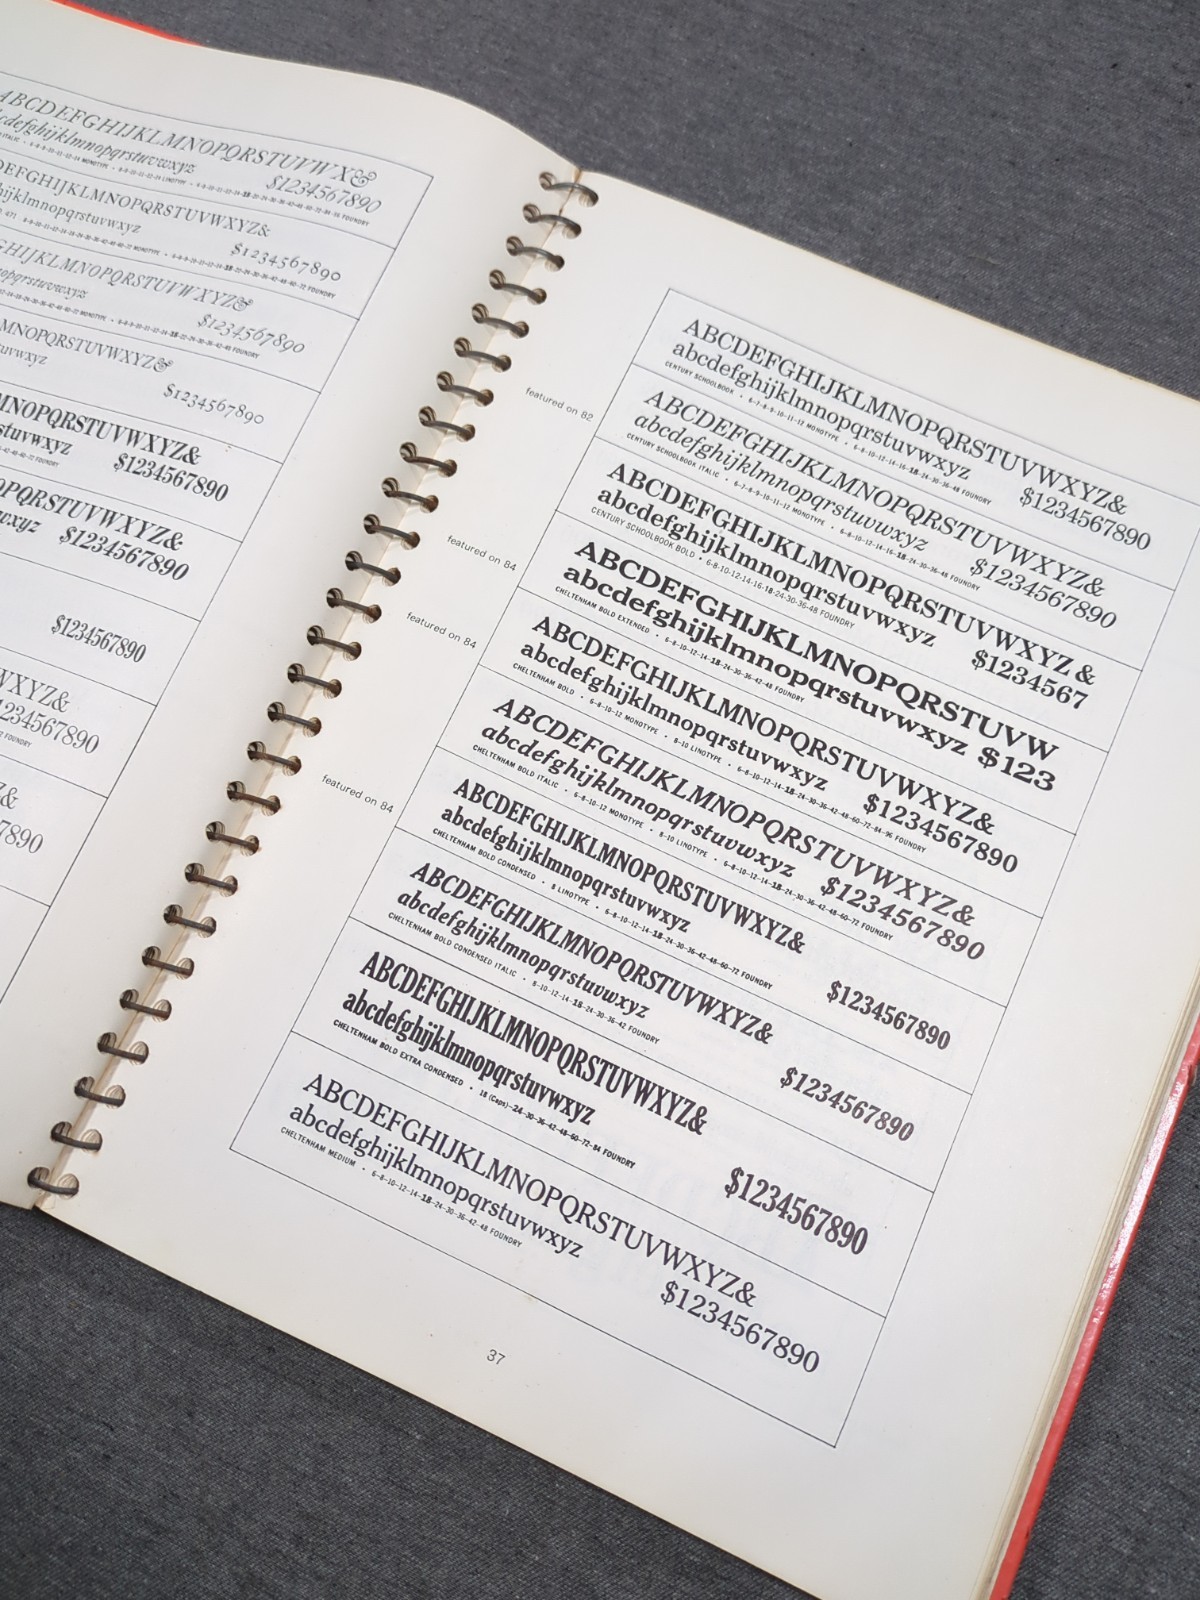 ABCDEFGHIJKLMNOPQRSTUVWX&
$1234567890
DEFGHIJKLMNOPQRSTUVWXYZ&
$1234567890
GHIJKLMNOPQRSTUVWXYZ&
$1234567890
MNOPQRSTUVWXYZ&
$1234567890
MNOPQRSTUVWXYZ&
$1234567890
OPQRSTUVWXYZ&
$1234567890
$1234567890
WXYZ&
234567890
&
7890
featured on 82
featured on 84
featured on 84
featured on 84
ABCDEFGHIJKLMNOPQRSTUVWXYZ&
abcdefghijklmnopqrstuvwxyz $1234567890
CENTURY SCHOOLBOOK • 6-7-8-9-10-11-12 MONOTYPE • 6-8-10-12-14-16-18-24-30-36-48 FOUNDRY
ABCDEFGHIJKLMNOPQRSTUVWXYZ&
abcdefghijklmnopqrstuvwxyz $1234567890
CENTURY SCHOOLBOOK ITALIC • 6-7-8-9-10-11-12 MONOTYPE • 6-8-10-12-14-16-18-24-30-36-48 FOUNDRY
ABCDEFGHIJKLMNOPQRSTUVWXYZ &
abcdefghijklmnopqrstuvwxyz $1234567
CENTURY SCHOOLBOOK BOLD • 6-8-10-12-14-16-18-24-30-36-48 FOUNDRY
ABCDEFGHIJKLMNOPQRSTUVW
abcdefghijklmnopqrstuvwxyz $123
CHELTENHAM BOLD EXTENDED • 6-8-10-12-14-18-24-30-36-42-48 FOUNDRY
ABCDEFGHIJKLMNOPQRSTUVWXYZ&
abcdefghijklmnopqrstuvwxyz $1234567890
CHELTENHAM BOLD • 6-8-10-12 MONOTYPE • 8-10 LINOTYPE • 6-8-10-12-14-18-24-30-36-42-48-60-72-84-96 FOUNDRY
ABCDEFGHIJKLMNOPQRSTUVWXYZ&
abcdefghijklmnopqrstuvwxyz $1234567890
CHELTENHAM BOLD ITALIC • 6-8-10-12 MONOTYPE • 8-10 LINOTYPE • 6-8-10-12-14-18-24-30-36-42-48-60-72 FOUNDRY
ABCDEFGHIJKLMNOPQRSTUVWXYZ&
abcdefghijklmnopqrstuvwxyz $1234567890
CHELTENHAM BOLD CONDENSED • 8 LINOTYPE • 6-8-10-12-14-18-24-30-36-42-48-60-72 FOUNDRY
ABCDEFGHIJKLMNOPQRSTUVWXYZ&
abcdefghijklmnopqrstuvwxyz $1234567890
CHELTENHAM BOLD CONDENSED ITALIC • 8-10-12-14-18-24-30-36-42 FOUNDRY
ABCDEFGHIJKLMNOPQRSTUVWXYZ&
abcdefghijklmnopqrstuvwxyz $1234567890
CHELTENHAM BOLD EXTRA CONDENSED • 18 (Caps)-24-30-36-42-48-60-72-84 FOUNDRY
ABCDEFGHIJKLMNOPQRSTUVWXYZ&
abcdefghijklmnopqrstuvwxyz $1234567890
CHELTENHAM MEDIUM • 6-8-10-12-14-18-24-30-36-42-48 FOUNDRY
37